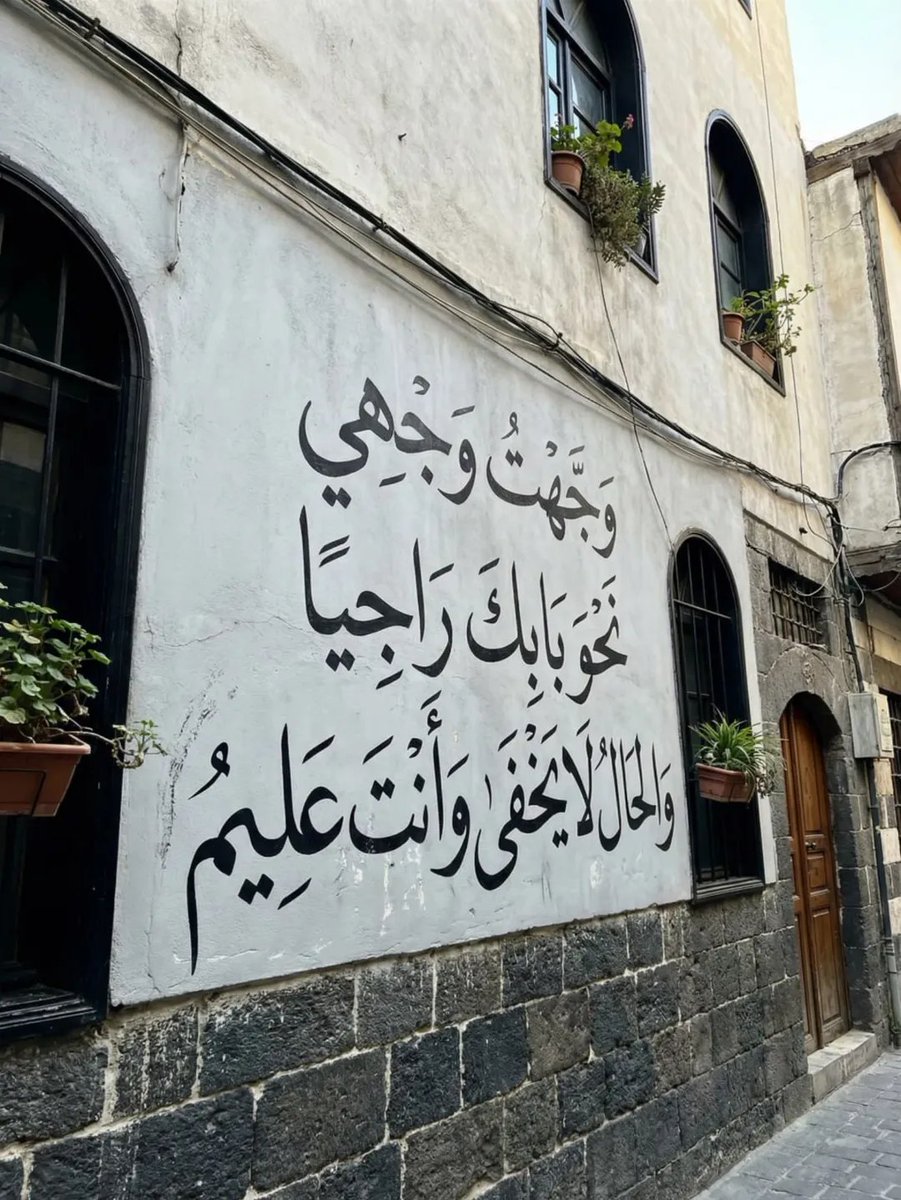 وَجَّهْتُ وَجْهِي
نَحْوَ بَابِكَ رَاجِيًا
وَالحَالُ لَا يَخْفَى وَأَنْتَ عَلِيمُ